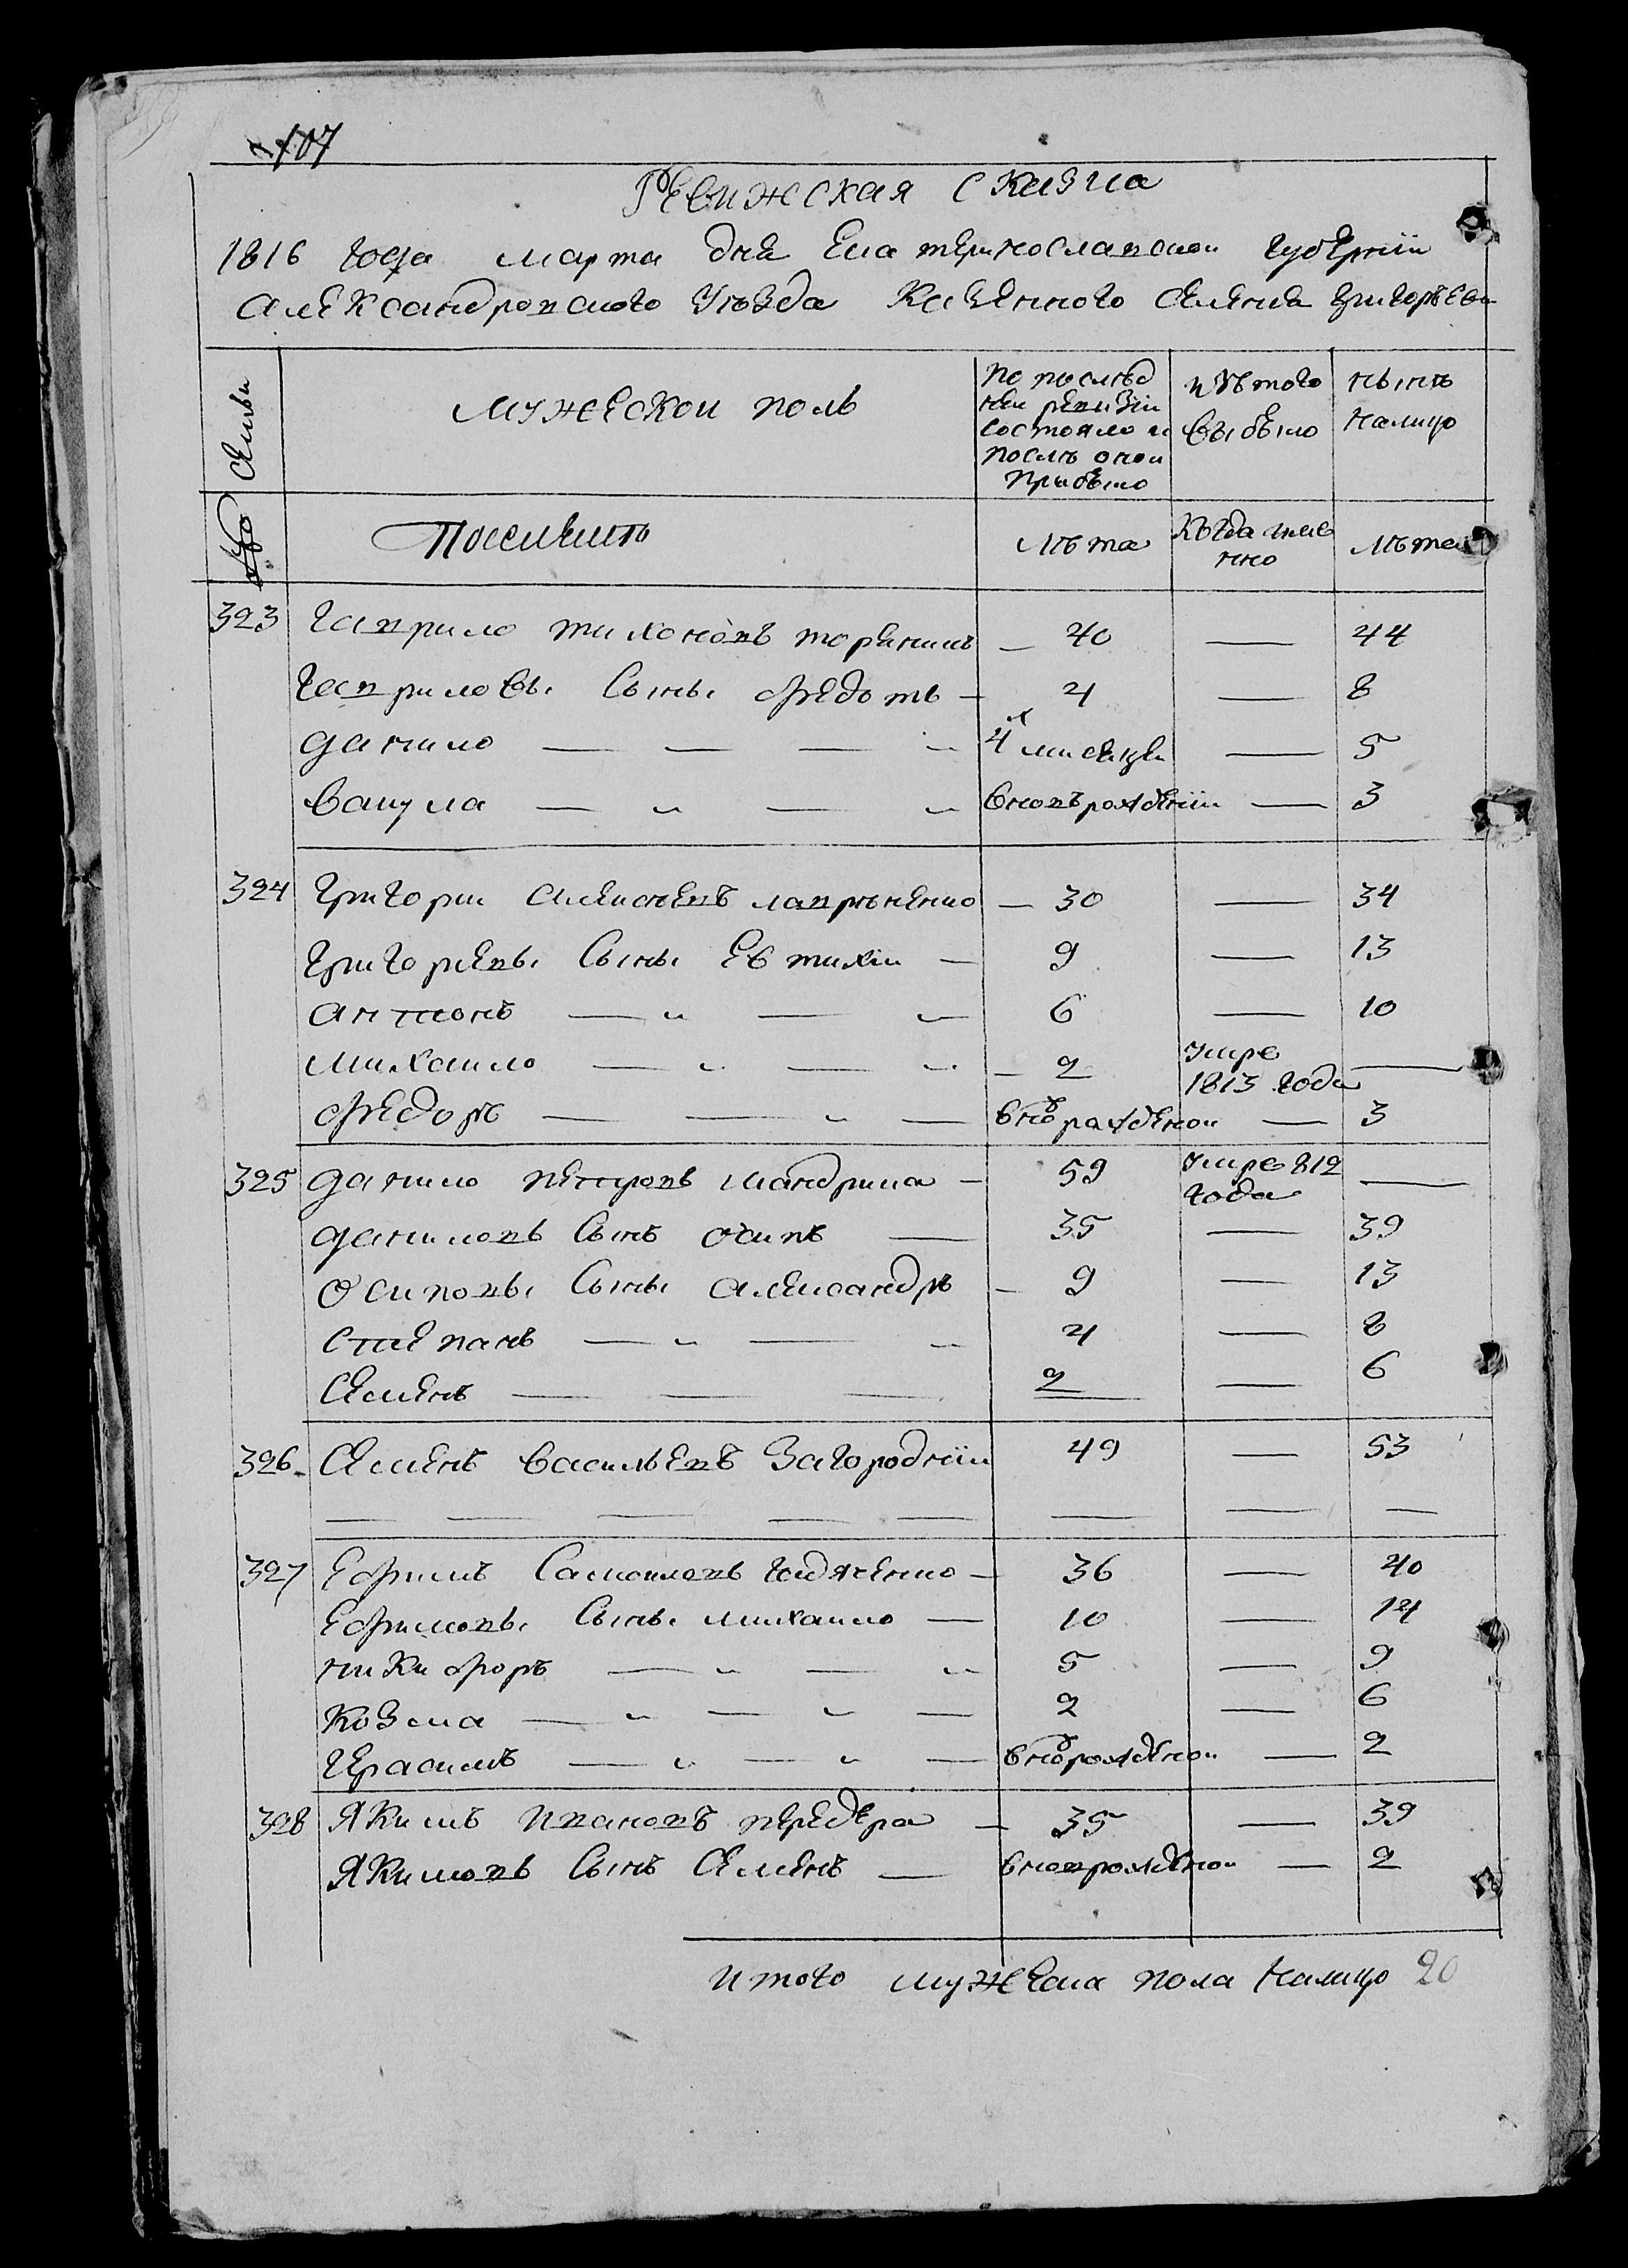 107
Ревижская сказка
1816 года марта дня Екатеринославской Губернии
Александровского Уезда Казенного Селения Григорьевки
№ Семьи
Мужеской поль
По последней ревизии состояло и после оной прибыло
Изъ того выбыло
Нынѣ налицо
Поселянѣ
Лѣта
Когда именно
Лѣта
323 Гаврило Тихоновъ — 40 — 44
Гавриловы Сыны Федотъ — 4 — 8
Данило — — — „ 4 месяцы — 5
Вакула — „ — „ вновъ рожденій — 3
324 Григорий Алексѣевъ Лавриненко — 30 — 34
Григориевы Сыны Евтихій — 9 — 13
Антонъ — „ — „ 6 — 10
Михаило — „ — „ — 2 умре 1813 года —
Федоръ — — „ — внов рожденой — 3
325 Данило Петровъ Шандрика — 59 умре 812 года —
Даниловъ Сынъ Осипъ — 35 — 39
Осиповы Сыны Александръ — 9 — 13
Степанъ — „ — „ 4 — 8
Семенъ — — — 2 — 6
326 Семенъ Васильевъ Загородній 49 — 53
327 Ефимъ Самоиловъ Гадяченко — 36 — 40
Ефимовы Сыны Михаило — 10 — 14
Никифоръ — „ — „ 5 — 9
Козма — „ — „ — 2 — 6
Герасимъ — „ — „ — внов рожденой — 2
328 Якимъ Ивановъ Передера — 35 — 39
Якимовъ Сынъ Семенъ — вновърожденой — 2
Итого мужеска пола налицо 20